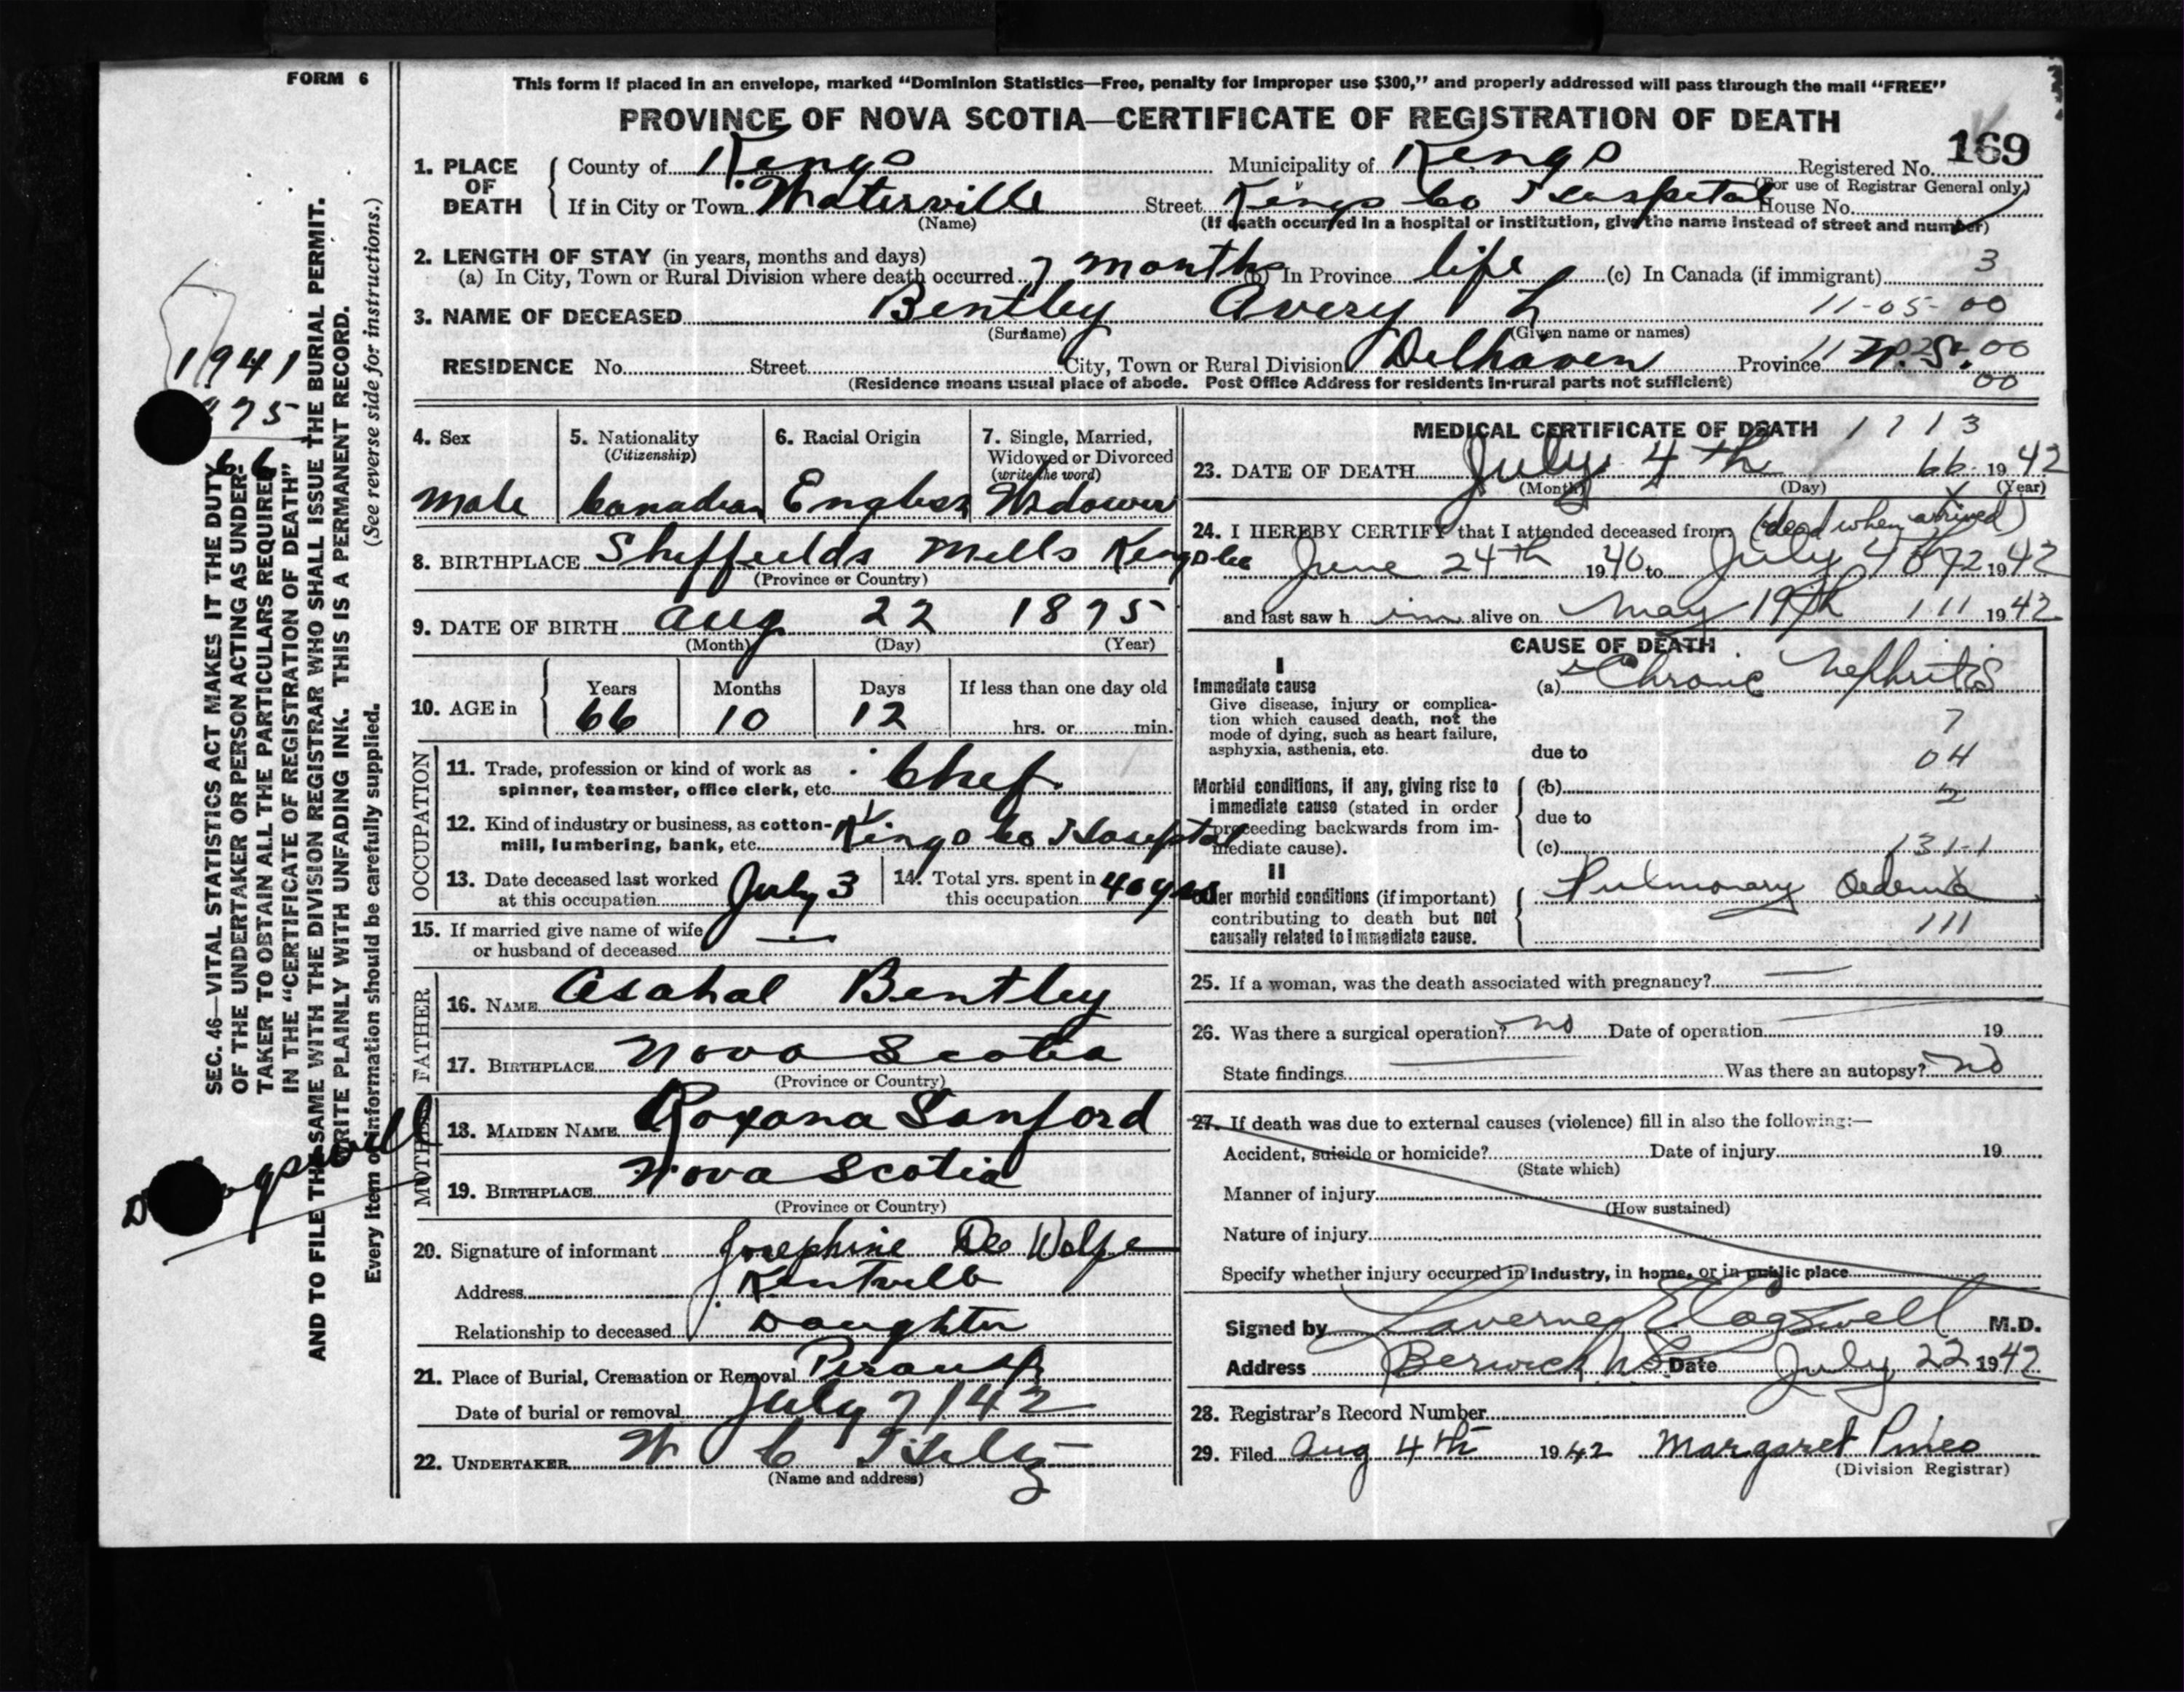 FORM 6
This form if placed in an envelope, marked “Dominion Statistics—Free, penalty for improper use $300,” and properly addressed will pass through the mail “FREE”
PROVINCE OF NOVA SCOTIA—CERTIFICATE OF REGISTRATION OF DEATH
169
1. PLACE OF DEATH
County of Kings Municipality of Kings Registered No.
(For use of Registrar General only)
If in City or Town Waterville Street Kings Co Hospital House No.
(Name) (If death occurred in a hospital or institution, give the name instead of street and number)
2. LENGTH OF STAY (in years, months and days)
(a) In City, Town or Rural Division where death occurred 7 months (b) In Province life (c) In Canada (if immigrant) 3
3. NAME OF DECEASED Bentley Avery L 11-05-00
(Surname) (Given name or names)
RESIDENCE No. Street City, Town or Rural Division Delhaven Province N.S. 00
(Residence means usual place of abode. Post Office Address for residents in rural parts not sufficient) 00
4. Sex 5. Nationality (Citizenship) 6. Racial Origin 7. Single, Married, Widowed or Divorced (write the word)
Male Canadian English Widower
8. BIRTHPLACE Sheffields Mills Kings Co
(Province or Country)
9. DATE OF BIRTH Aug 22 1875
(Month) (Day) (Year)
10. AGE in Years Months Days If less than one day old
66 10 12 hrs. or min.
OCCUPATION
11. Trade, profession or kind of work as spinner, teamster, office clerk, etc. Chef.
12. Kind of industry or business, as cotton-mill, lumbering, bank, etc. Kings Co Hospital
13. Date deceased last worked at this occupation July 3
14. Total yrs. spent in this occupation 40 yrs
15. If married give name of wife or husband of deceased —
FATHER
16. NAME Asahal Bentley
17. BIRTHPLACE Nova Scotia
(Province or Country)
MOTHER
18. MAIDEN NAME Roxana Sanford
19. BIRTHPLACE Nova Scotia
(Province or Country)
20. Signature of informant Josephine De Wolfe
Address Kentville
Relationship to deceased Daughter
21. Place of Burial, Cremation or Removal
Date of burial or removal July 7/42
22. UNDERTAKER W C Hiltz
(Name and address)
MEDICAL CERTIFICATE OF DEATH 1713
23. DATE OF DEATH July 4th 66 1942
(Month) (Day) (Year)
24. I HEREBY CERTIFY that I attended deceased from (dead when arrived)
June 24th 1940 to July 4th 1942
and last saw him alive on May 19th 111 1942
CAUSE OF DEATH
I
Immediate cause
Give disease, injury or complication which caused death, not the mode of dying, such as heart failure, asphyxia, asthenia, etc.
(a) Chronic Nephritis
7
due to 04
Morbid conditions, if any, giving rise to immediate cause (stated in order proceeding backwards from immediate cause).
(b) 2
due to
(c) 131-1
II
Other morbid conditions (if important) contributing to death but not causally related to immediate cause.
Pulmonary Oedema
111
25. If a woman, was the death associated with pregnancy? —
26. Was there a surgical operation? No Date of operation 19
State findings — Was there an autopsy? No
27. If death was due to external causes (violence) fill in also the following:—
Accident, suicide or homicide? Date of injury 19
(State which)
Manner of injury
(How sustained)
Nature of injury
Specify whether injury occurred in industry, in home, or in public place
Signed by Laverne E Cogswell M.D.
Address Berwick N.S. Date July 22 1942
28. Registrar's Record Number
29. Filed Aug 4th 1942 Margaret Pineo
(Division Registrar)
1941
75
66
SEC. 46—VITAL STATISTICS ACT MAKES IT THE DUTY
OF THE UNDERTAKER OR PERSON ACTING AS UNDER-
TAKER TO OBTAIN ALL THE PARTICULARS REQUIRED
IN THE “CERTIFICATE OF REGISTRATION OF DEATH”
AND TO FILE THE SAME WITH THE DIVISION REGISTRAR WHO SHALL ISSUE THE BURIAL PERMIT.
WRITE PLAINLY WITH UNFADING INK. THIS IS A PERMANENT RECORD.
Every item of information should be carefully supplied. (See reverse side for instructions.)